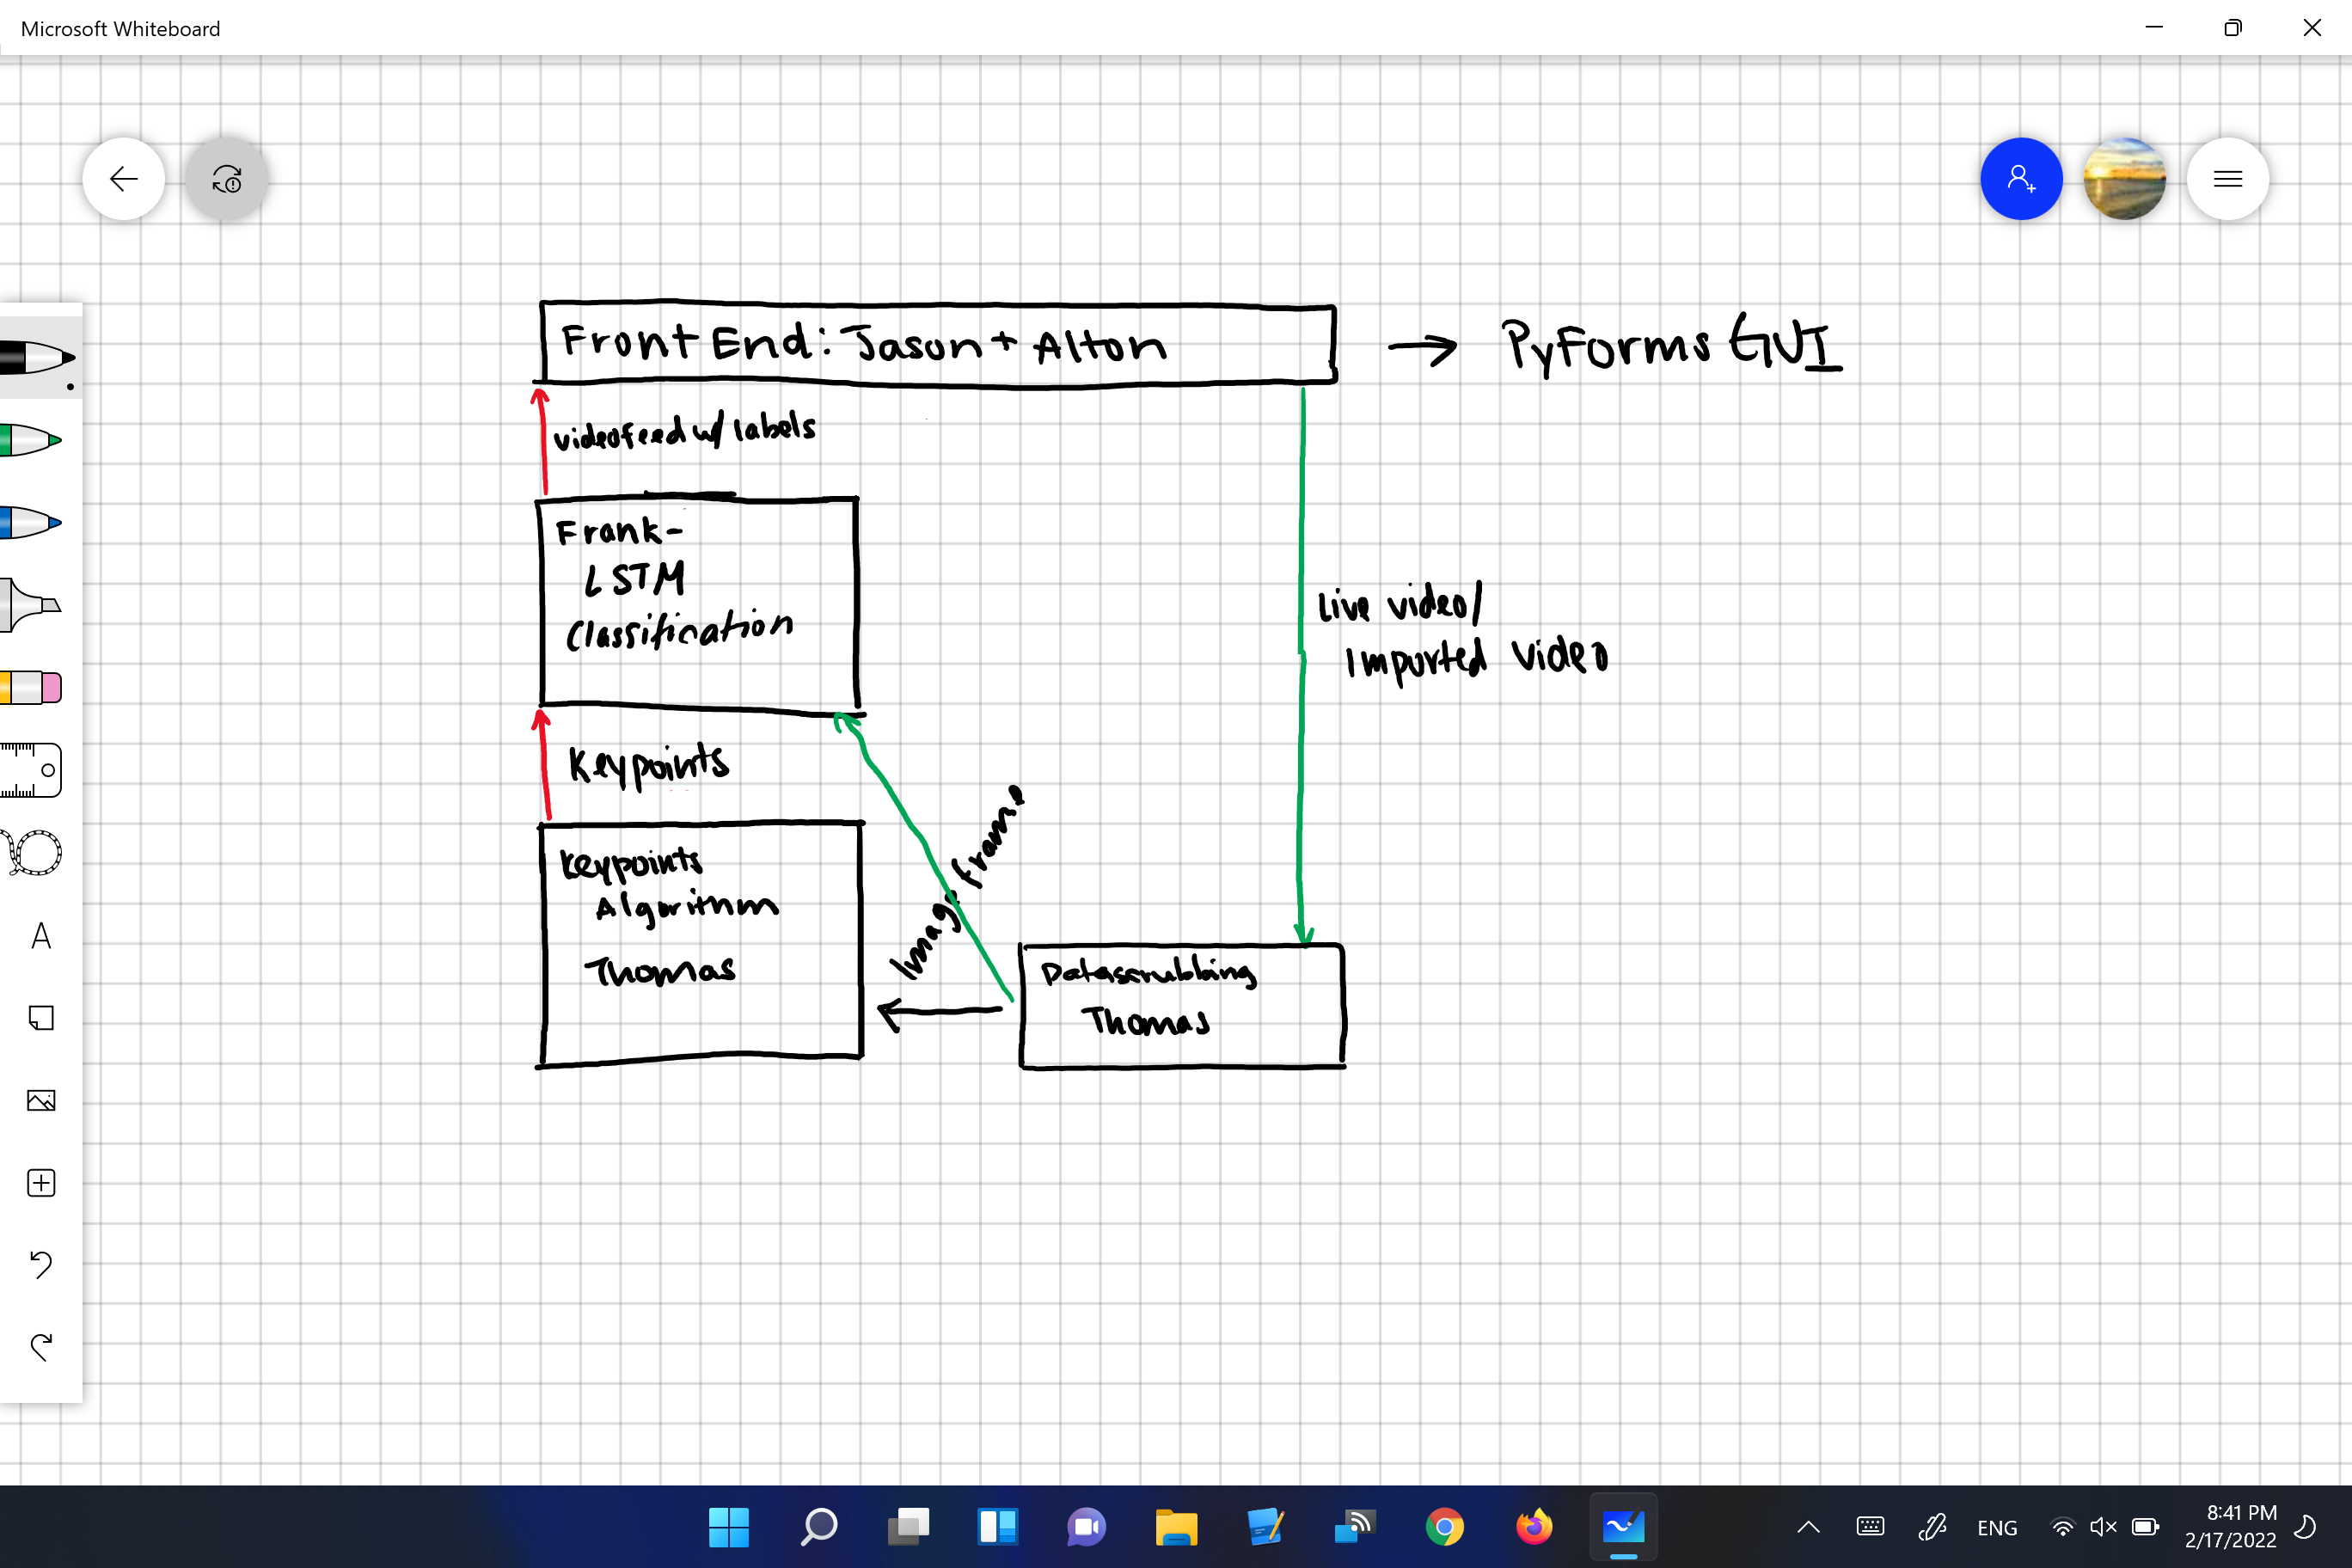 Microsoft Whiteboard
Front End: Jason + Alton
PyForms GUI
videofeed w/ labels
Frank-
LSTM
Classification
Live video/
Imported video
Keypoints
Image frame
Keypoints
Algorithm
Thomas
Datascrubbing
Thomas
A
ENG
8:41 PM
2/17/2022